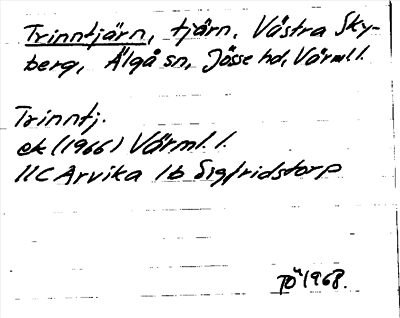 Trinntjärn, tjärn, Västra Sky-
berg, Älgå sn, Jösse hd, Värml.l.
Trinntj.
ek (1966) Värml. l.
11C Arvika 1b Sigfridstorp
PÖ 1968.